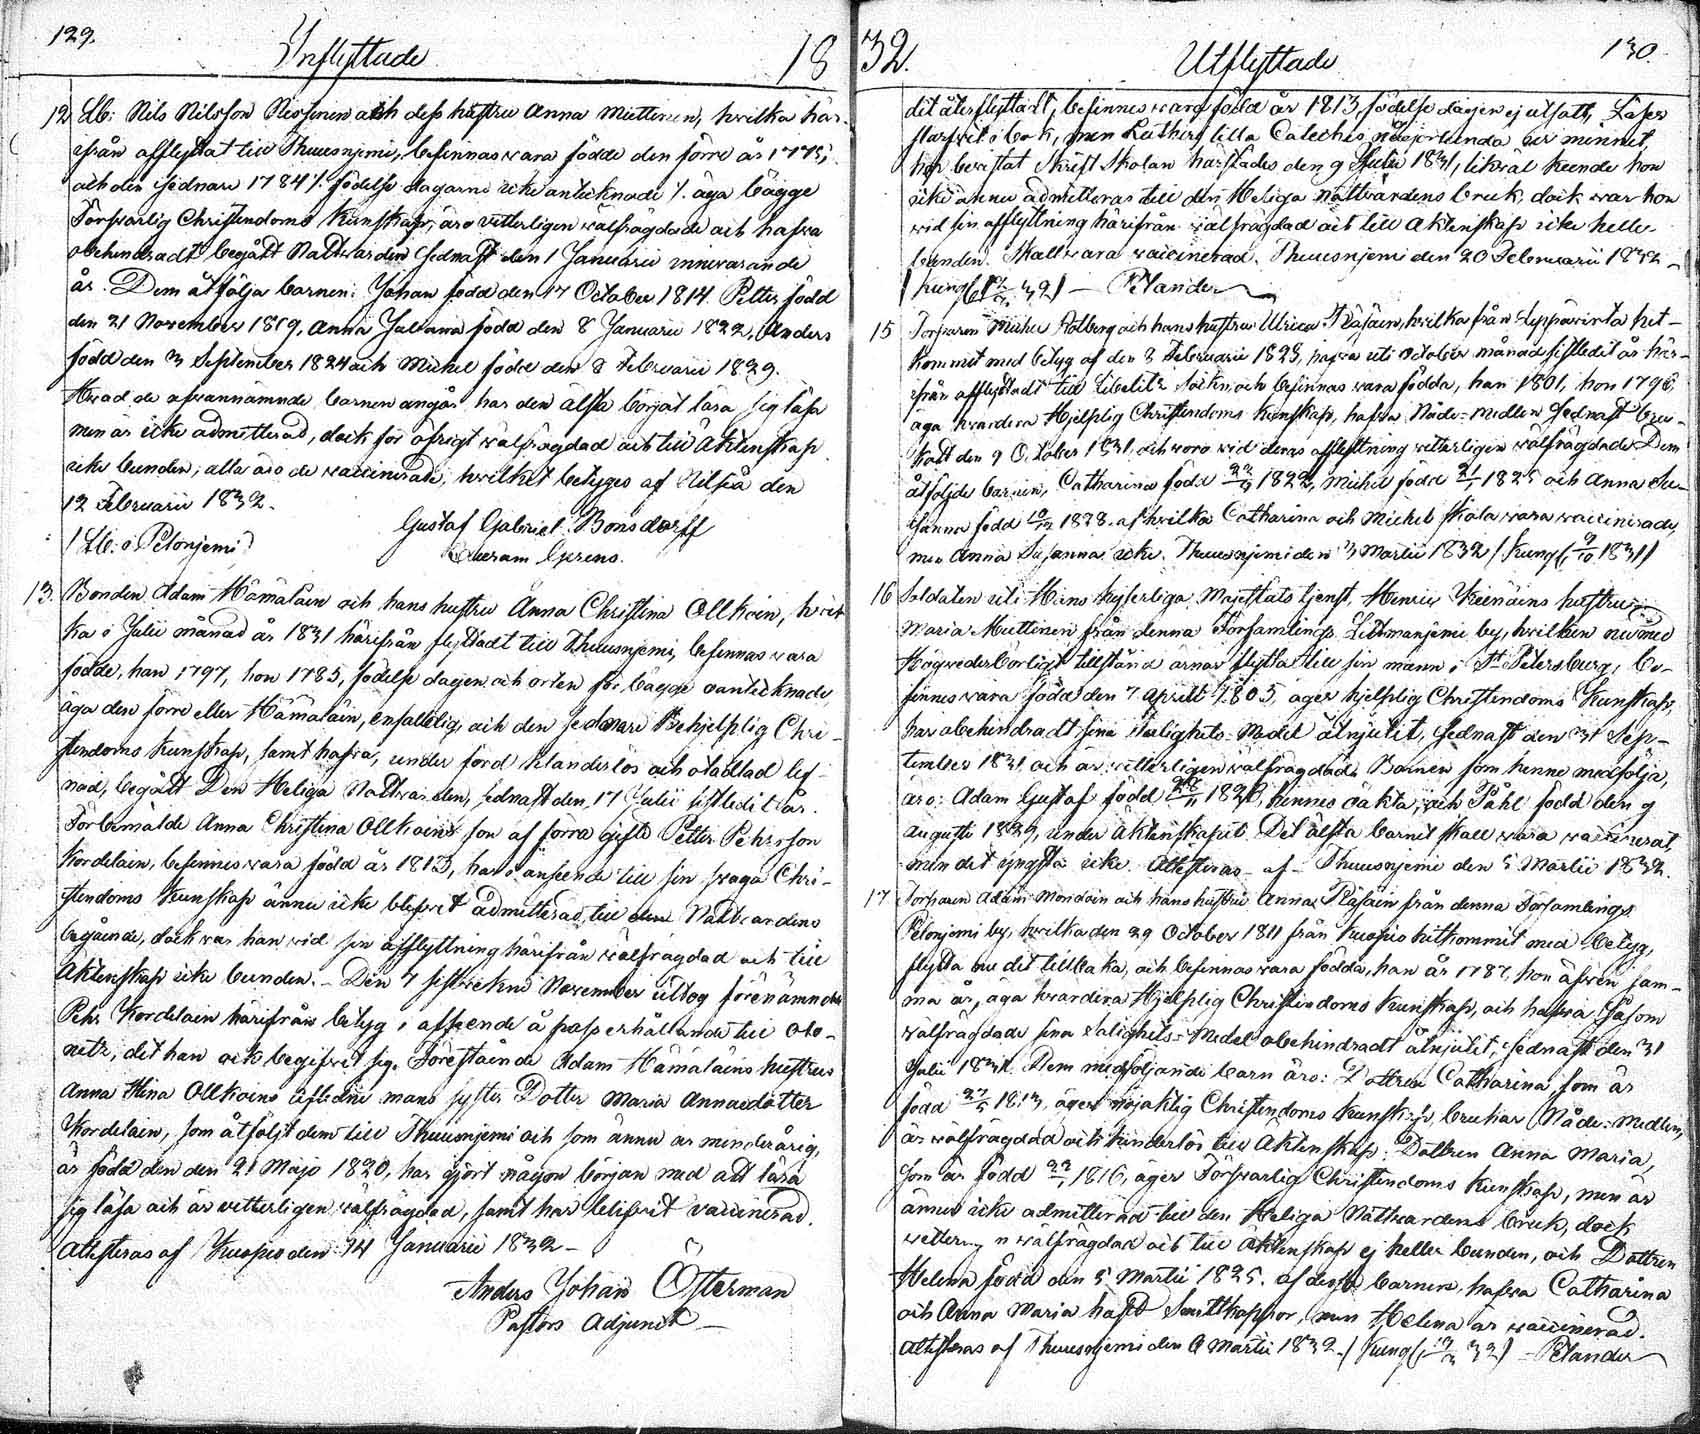 129.
Inflyttade
18
12 Lb: Nils Nilsson Nissinen och dess hustru Anna Miettinen, hvilka här-
ifrån afflyttat till Thuusnjemi, befinnas vara födde den förre år 1775,
och den sednare 1784 /: födelse dagarne icke antecknade :/ äga bägge
Förswarlig Christendoms kunskap, äro vitterligen wälfrägdade och hafva
obehindradt begått Nattvarden sednast den 1 Januarii innevarande
år. Dem åtfölja barnen: Johan född den 17 October 1814. Petter född
den 21 November 1819, Anna Juliana född den 8 Januarii 1822, Anders
född den 3 September 1824 och Michel född den 8 Februarii 1829.
Hvad de ofvannämnde barnen angår har den älsta börjat lära sig läsa
men är icke admitterad, dock för öfrigt wälfrägdad och till Äktenskap
icke bunden, alla äro de vaccinerade, hvilket betyges af Nilsiä den
12 Februarii 1832.
Gustaf Gabriel Bonsdorff
/ Lb: ö Pelonjemi /
13. Bonden Adam Hämäläin och hans hustru Anna Christina Ollkoin, hvil-
ka i Julii månad år 1831 härifrån flyttadt till Thuusnjemi, befinnas vara
födde, han 1797, hon 1785, födelse dagen och orten för bägge oantecknade,
äga den förre eller Hämäläin, enfalldig, och den sednare Behjelplig Chri-
stendoms kunskap, samt hafva, under förd klanderlös och otadlad lef-
nad, begått Den Heliga Nattvarden, sednast den 17 Julii sistledit år.
Förbemälde Anna Christina Ollkoins son af förra gifte Petter Pehrsson
Kordelain, befinnes vara född år 1813, har i anseende till sin svaga Chri-
stendoms kunskap ännu icke blifvit admitterad till den Nattvardens
begående, dock var han vid sin afflyttning härifrån wälfrägdad och till
Äktenskap icke bunden. - Den 7 sistvekne November uttog förenämnde
Pehr Kordelain härifrån betyg i afseende å pass erhållande till Olo-
netz, dit han ock begifvit sig. Föreståënde Adam Hämäläins hustrus
Anna Stina Ollkoins afledne mans syster Dotter Maria Annaedotter
Kordelain, som åtföljt dem till Thuusnjemi och som ännu är minderårig,
är född den den 21 Maji 1820, har gjort någon början med att lära
sig läsa och är vitterligen wälfrägdad, samt har blifvit vaccinerad.
Attesteras af Kuopio den 14 Januarii 1832 -
Anders Johan Österman
Pastors Adjunct -
32.
Utflyttade
130.
dit återflyttadt, befinnes vara född år 1813, födelse dagen ej utsatt, Läser
i bok, men Luthers lilla Catechis utur minnet,
har bevistat Skrift Skolan härstädes den 9 Julii 1831, likväl kunde hon
icke ännu admitteras till den Heliga Nattvardens bruk, dock var hon
vid sin afflyttning härifrån wälfrägdad och till Äktenskap icke heller
bunden. Skall vara vaccinerad. Thuusnjemi den 20 Februarii 1832 -
32) - Pelander
15 Torparen Michel Adlberg och hans hustru Ulrica Räsäin, hvilka från Leppävirta hit-
kommit med betyg af den 3 Februarii 1828, hafva uti October månad sistledit år här-
ifrån afflyttadt till Libelitz Socken och befinnas vara födda, han 1801, hon 1798,
äga hvardera Hjelplig Christendoms kunskap, hafva Nåde-medlen sednast bru-
kadt den 9 October 1831 och voro vid deras afflyttning vitterligen wälfrägdade. Dem
åtföljde barnen, Catharina född 1822, Michel född 1825 och Anna Su-
sanna född 1828. af hvilka Catharina och Michel skola vara vaccinerade,
men Anna Susanna icke. Thuusnjemi den 3 Martii 1832 / Kung(: 9/10 1831)
16 Soldaten uti Hans Kejserliga Majestäts tjenst, Henric Keinäins hustru
Maria Miettinen från denna Församlings Litmanjemi by, hvilken nu med
Högvederbörligt tillstånd ärnar flytta till sin mann i St Petersburg, be-
finnes vara född den 7 Aprill 1805, äger hjelplig Christendoms kunskap,
har obehindradt sina Salighets-Medel åtnjutit, sednast den 31 Sep-
tember 1831 och är vitterligen wälfrägdad. Barnen som henne medfölja,
äro: Adam Gustaf född 1828, hennes oäkta, och Påhl född den 9
Augusti 1829, under Äktenskapet. Det älsta barnet skall vara vaccinerat,
men det yngsta icke. Attesteras af Thuusnjemi den 5 Martii 1832.
17 Torparen Adam Mondain och hans hustru Anna Räsäin från denna Församlings
Pelonjemi by, hvilka den 29 October 1811 från Kuopio hitkommit med betyg,
flytta nu dit tillbaka, och befinnas vara födda, han år 1787, hon äfven sam-
ma år, äga hvardera Hjelplig Christendoms kunskap, och hafva såsom
wälfrägdade sina Salighets-Medel obehindradt åtnjutit, sednast den 31
Julii 1831. Dem medföljande barn äro: Dottren Catharina, som är
född 27/5 1813, äger nöjaktig Christendoms kunskap, brukar Nåde-Medlen,
är wälfrägdad och hinderlös till Äktenskap. Dottren Anna Maria,
som är född 1816, äger Förswarlig Christendoms kunskap, men är
ännu icke admitterad till den Heliga Nattvardens bruk, dock
vitterligen wälfrägdad och till Äktenskap ej heller bunden, och Dottren
Helena född den 5 Martii 1825. af dessa barnen, hafva Catharina
och Anna Maria haft Smittkoppor, men Helena är vaccinerad.
Attesteras af Thuusnjemi den 9 Martii 1832 / Kung(: 32) - Pelander